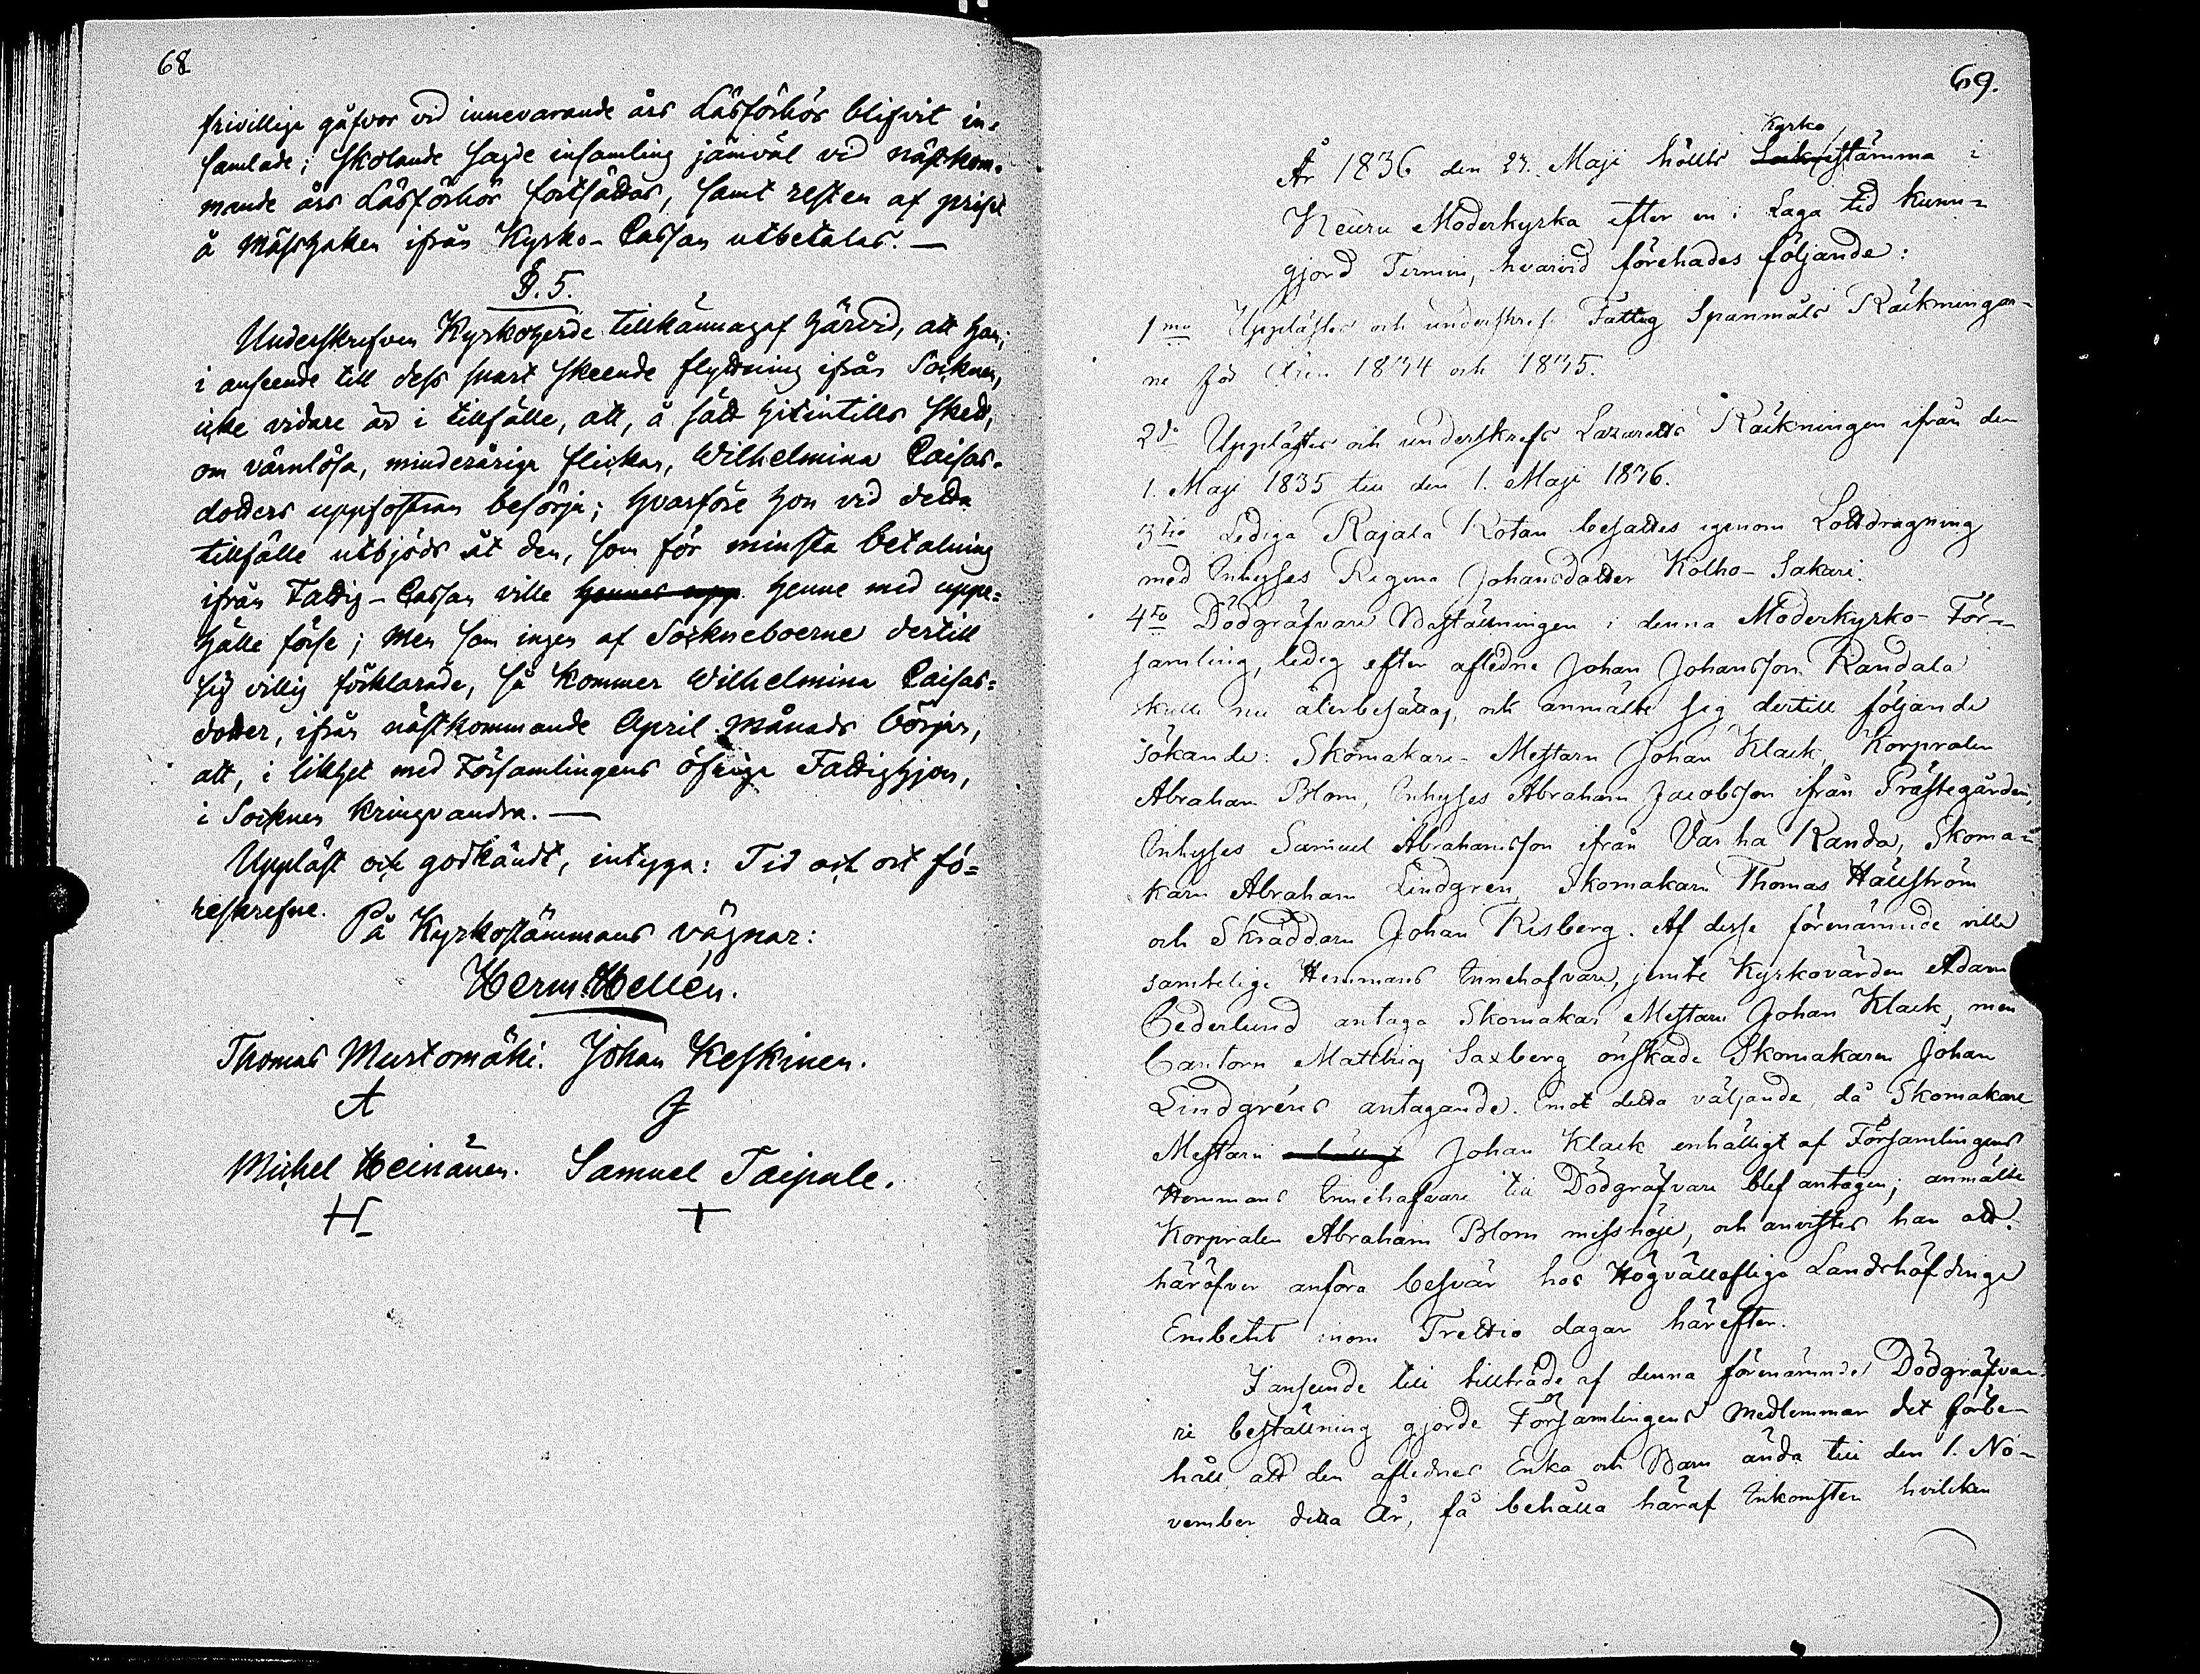 68
frivillige gåfvor vid innevarande års Läsförhör blifvit in-
samlade; skolande sagde insamling jämväl vid nästkom-
mande års Läsförhör fortsättas, samt resten af priset
å Mässhaken ifrån Kyrko-Cassan utbetalas. —
§. 5.
Underskrefven Kyrkoherde tillkännagaf härvid, att han,
i anseende till dess snart skeende flyttning ifrån Socknen,
icke vidare är i tillfälle, att, å sätt hitintills skett,
om värnlösa, minderåriga flickan, Wilhelmina Caisas-
dotters uppfostran besörja; hvarföre hon vid detta
tillfälle utbjöds åt den, som för minsta betalning
ifrån Fattig-Cassan ville hennes upp henne med uppe-
hälle förse; men som ingen af Sockneboerne dertill
sig villig förklarade, så kommer Wilhelmina Caisas-
dotter, ifrån nästkommande April månads början,
att, i likhet med Församlingens öfrige Fattighjon,
i Socknen kringvandra. —
Uppläst och godkändt, intyga: Tid och ort fö-
reskrefne. På Kyrkostämmans vägnar:
Herm. Hellén.
Thomas Mustomäki. Johan Keskinen.
A J
Michel Heinänen. Samuel Taipale.
H +
69.
Kyrko
År 1836 den 27. Maji hölls Sockenstämma i
Keuru Moderkyrka efter en i Laga tid kunn-
gjord Termin, hvarvid förehades följande:
1mo Upplästes och underskrefs Fattig Spanmåls Räkningar-
ne för Åren 1834 och 1835.
2do Upplästes och underskrefs Lazaretts Räkningen ifrån den
1. Maji 1835 till den 1. Maji 1836.
3tio Lediga Rajala Rotan besattes igenom Lottdragning
med Inhyses Regina Johansdotter Kolho-Sakari.
4to Dödgräfvare Beställningen i denna Moderkyrko-För-
samling, ledig efter aflidne Johan Johansson Randala
skulle nu återbesättas, och anmälte sig dertill följande
sökande: Skomakare-Mestarn Johan Klack, Korpralen
Abraham Blom, Inhyses Abraham Jacobsson ifrån Prästegården,
Inhyses Samuel Abrahamsson ifrån Vanha Randa, Skoma-
karn Abraham Lindgren, Skomakarn Thomas Hällström
och Skräddarn Johan Risberg. Af desse förenämnde ville
samtelige Hemmans Innehafvare, jemte Kyrkovärden Adam
Cederlund antaga Skomakar Mestarn Johan Klack, men
Cantorn Matthias Saxberg önskade Skomakaren Johan
Lindgréns antagande. Emot detta väljande, då Skomakare
Mestarn Johan Klack enhälligt af Församlingens
Hemmans Innehafvare till Dödgräfvare blef antagen; anmälte
Korpralen Abraham Blom missnöje, och anvistes han att
häröfver anföra besvär hos Högvällofliga Landshöfdinge
Embetet inom Trettio dagar härefter.
I anseende till tillträde af denna förenämnde Dödgräfva-
re beställning gjorde Församlingens medlemmar det förbe-
håll att den aflidnes Enka och Barn ända till den 1. No-
vember detta År, få behålla häraf Inkomsten hvilken